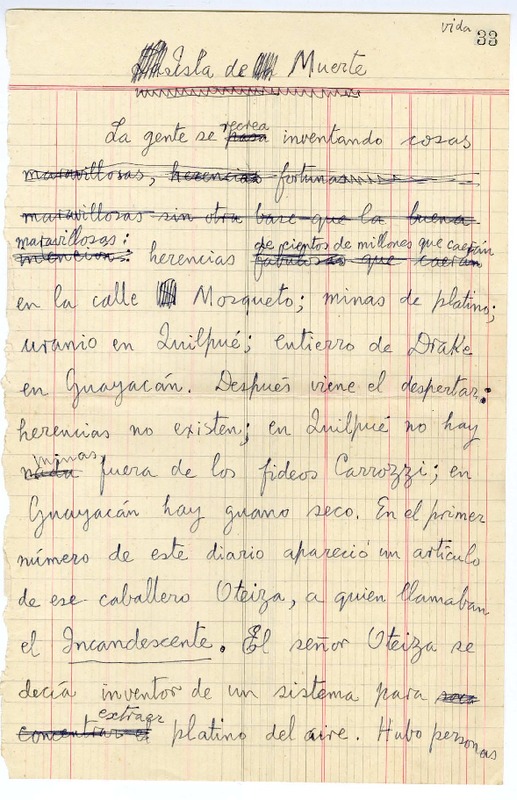 vida 33
Isla de Muerte
La gente se recrea pasa inventando cosas
maravillosas, herencias fortunas
maravillosas sin otra base que la buena
maravillosas: de cientos de millones que caerán
intención: herencias fabulosas que caerán
en la calle Mosqueto; minas de platino;
uranio en Quilpué; entierro de Drake
en Guayacán. Después viene el despertar:
herencias no existen; en Quilpué no hay
minas
nada fuera de los fideos Carrozzi; en
Guayacán hay guano seco. En el primer
número de este diario apareció un artículo
de ese caballero Oteiza, a quien llamaban
el Incandescente. El señor Oteiza se
decía inventor de un sistema para saca
extraer
concentrar el platino del aire. Hubo personas